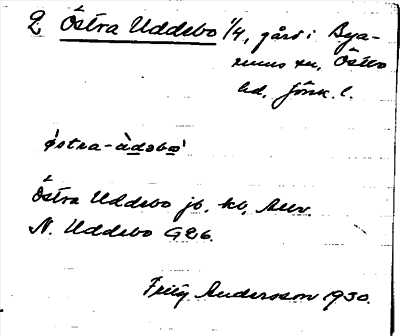 2 Östra Uddebo 1/4, gård i Bya-
rums sn, Östbo
hd, Jönk. l.
östra-àdəbo
Östra Uddebo jb. kb,
N. Uddebo G26.
Fritz Andersson 1930.